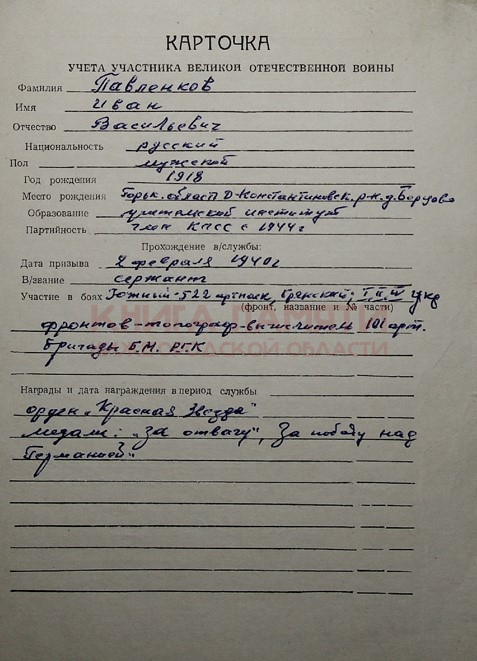 КАРТОЧКА
УЧЕТА УЧАСТНИКА ВЕЛИКОЙ ОТЕЧЕСТВЕННОЙ ВОЙНЫ
Фамилия Павленков
Имя Иван
Отчество Васильевич
Национальность русский
Пол мужской
Год рождения 1918
Место рождения Горьк. област Д-Константиновск. р-н. д.
Образование учительской институт
Партийность член КПСС с 1944 г
Прохождение в/службы:
Дата призыва 2 февраля 1940 г
В/звание сержант
Участие в боях Южный-522 Брянский; I, II, IV Укр
(фронт, название и № части)
фронтов-топограф-вычислитель 101 арт.
бригады Б.М. РГК
КНИГА ПАМЯТИ
НИЖЕГОРОДСКОЙ ОБЛАСТИ
Награды и дата награждения в период службы
орден „Красная Звезда"
медали: „За отвагу", За победу над
Германией"